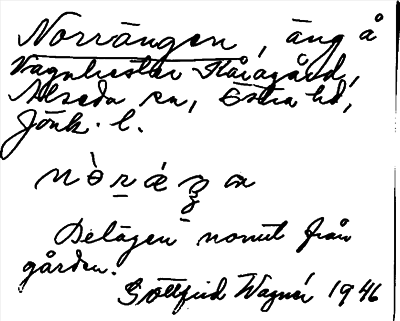 Norrängen, äng å
Vagnhester Råragård,
Alseda sn, Östra hd,
Jönk. l.
Belägen norrut från
gården.
Gottfrid Wagnér 1946